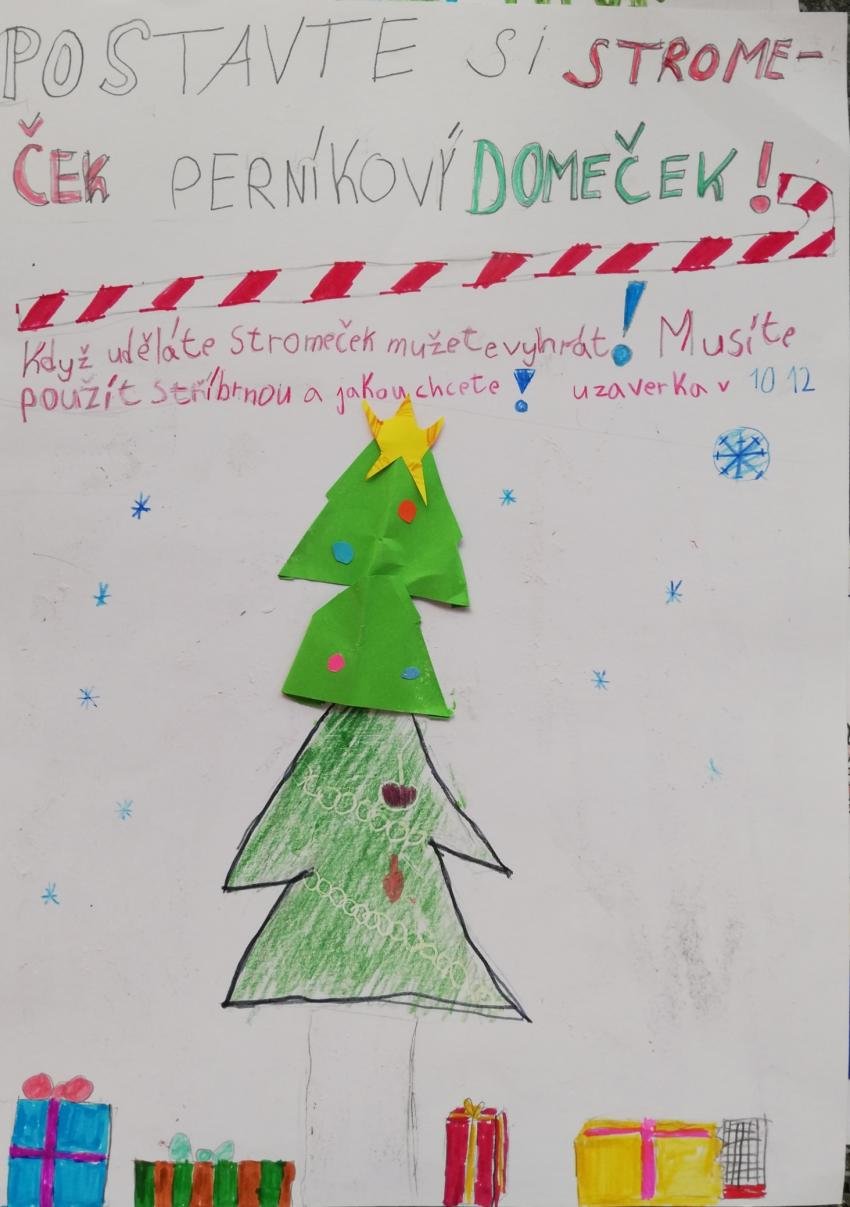 POSTAVTE Si STROME-
ČEK PERNíKOVÝ DOMEČEK!
Když uděláte Stromeček mužete vyhrát! Musíte
použít Stříbrnou a jakou chcete! uzaverka v 10 12